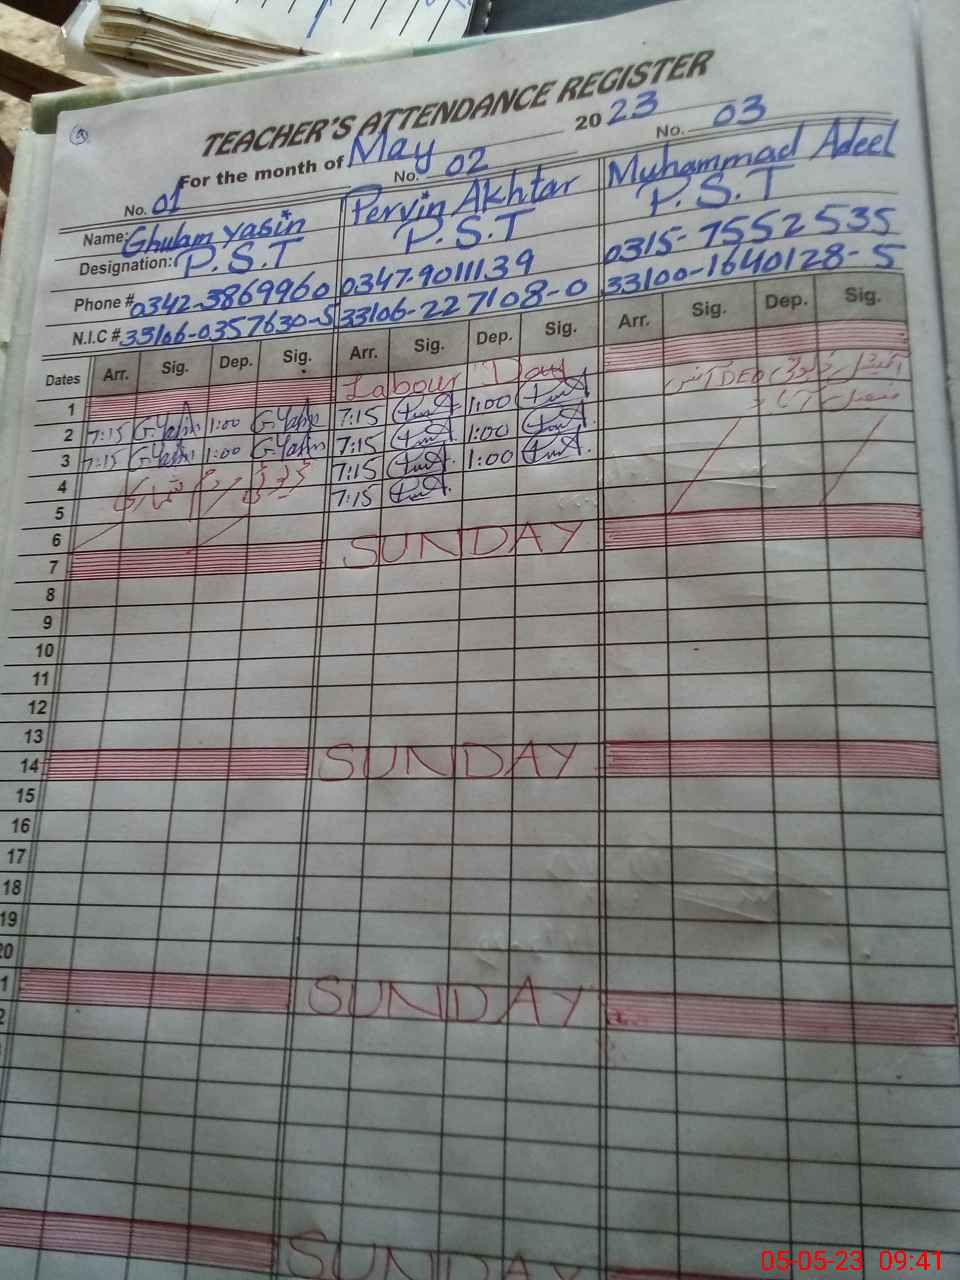 TEACHER'S ATTENDANCE REGISTER
For the month of May 2023
No. 01 No. 02 No. 03
Name: Ghulam Yasin Pervin Akhtar Muhammad Adeel
Designation: P.S.T P.S.T P.S.T
Phone # 0342-3869960 0347-9011139 0315-7552535
N.I.C # 33106-0357630-5 33106-227108-0 33100-1640128-5
Dates Arr. Sig. Dep. Sig. Arr. Sig. Dep. Sig. Arr. Sig. Dep. Sig.
1 Labour Day
2 7:15 G.Yasin 1:00 G.Yasin 7:15 1:00 DEO آفس
3 7:15 G.Yasin 1:00 G.Yasin 7:15 1:00 فیصل آباد
4 7:15 1:00
5 7:15
6
7 SUNDAY
8
9
10
11
12
13
14 SUNDAY
15
16
17
18
19
20
1 SUNDAY
2
SUNDAY
05-05-23 09:41